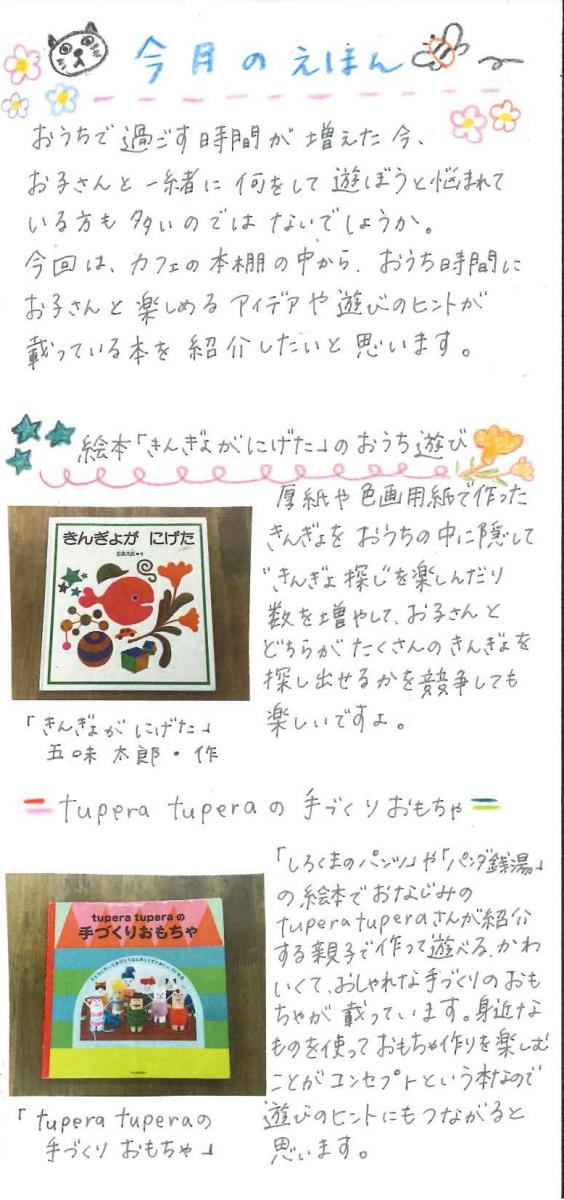 今月のえほん
おうちで過ごす時間が増えた今、
お子さんと一緒に何をして遊ぼうと悩まれて
いる方も多いのではないでしょうか。
今回は、カフェの本棚の中から、おうち時間に
お子さんと楽しめるアイデアや遊びのヒントが
載っている本を紹介したいと思います。
絵本「きんぎょがにげた」のおうち遊び
厚紙や色画用紙で作った
きんぎょをおうちの中に隠して
"きんぎょ探し"を楽しんだり
数を増やして、お子さんと
どちらがたくさんのきんぎょを
探し出せるかを競争しても
楽しいですよ。
きんぎょが にげた
五味太郎・作
「きんぎょが にげた」
五味 太郎・作
tupera tuperaの 手づくりおもちゃ
「しろくまのパンツ」や「パンダ銭湯」
の絵本でおなじみの
tupera tuperaさんが紹介
する親子で作って遊べる、かわ
いくて、おしゃれな手づくりのおも
ちゃが載っています。身近な
ものを使っておもちゃ作りを楽しむ
ことがコンセプトという本なので
遊びのヒントにもつながると
思います。
tupera tuperaの
手づくりおもちゃ
「tupera tuperaの
手づくり おもちゃ」